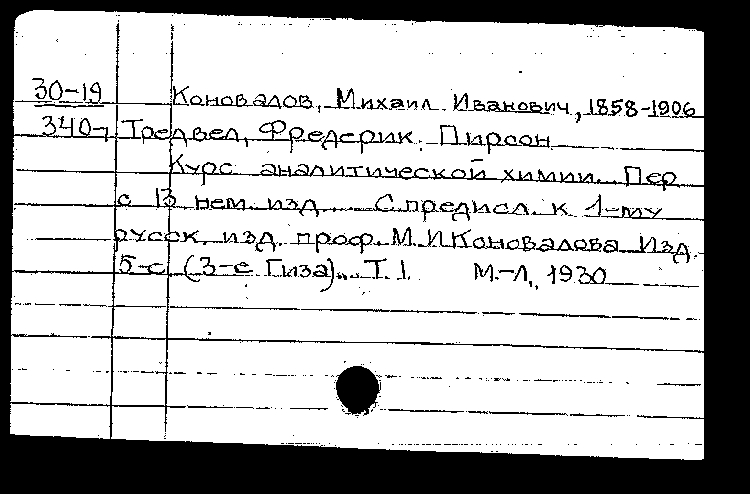 30-19 Коновалов, Михаил Иванович, 1858-1906
340-1 Тредвел, Фредерик Пирсон
Курс аналитической химии. Пер
с 13 нем. изд... С предисл. к 1-му
русск. изд. проф. М.И.Коновалова Изд.
5-е (3-е Гиза).. Т. I. М.-Л., 1930